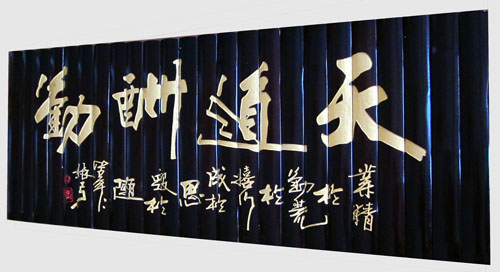 天道酬勤
業精於勤荒於嬉行成於思毀於隨